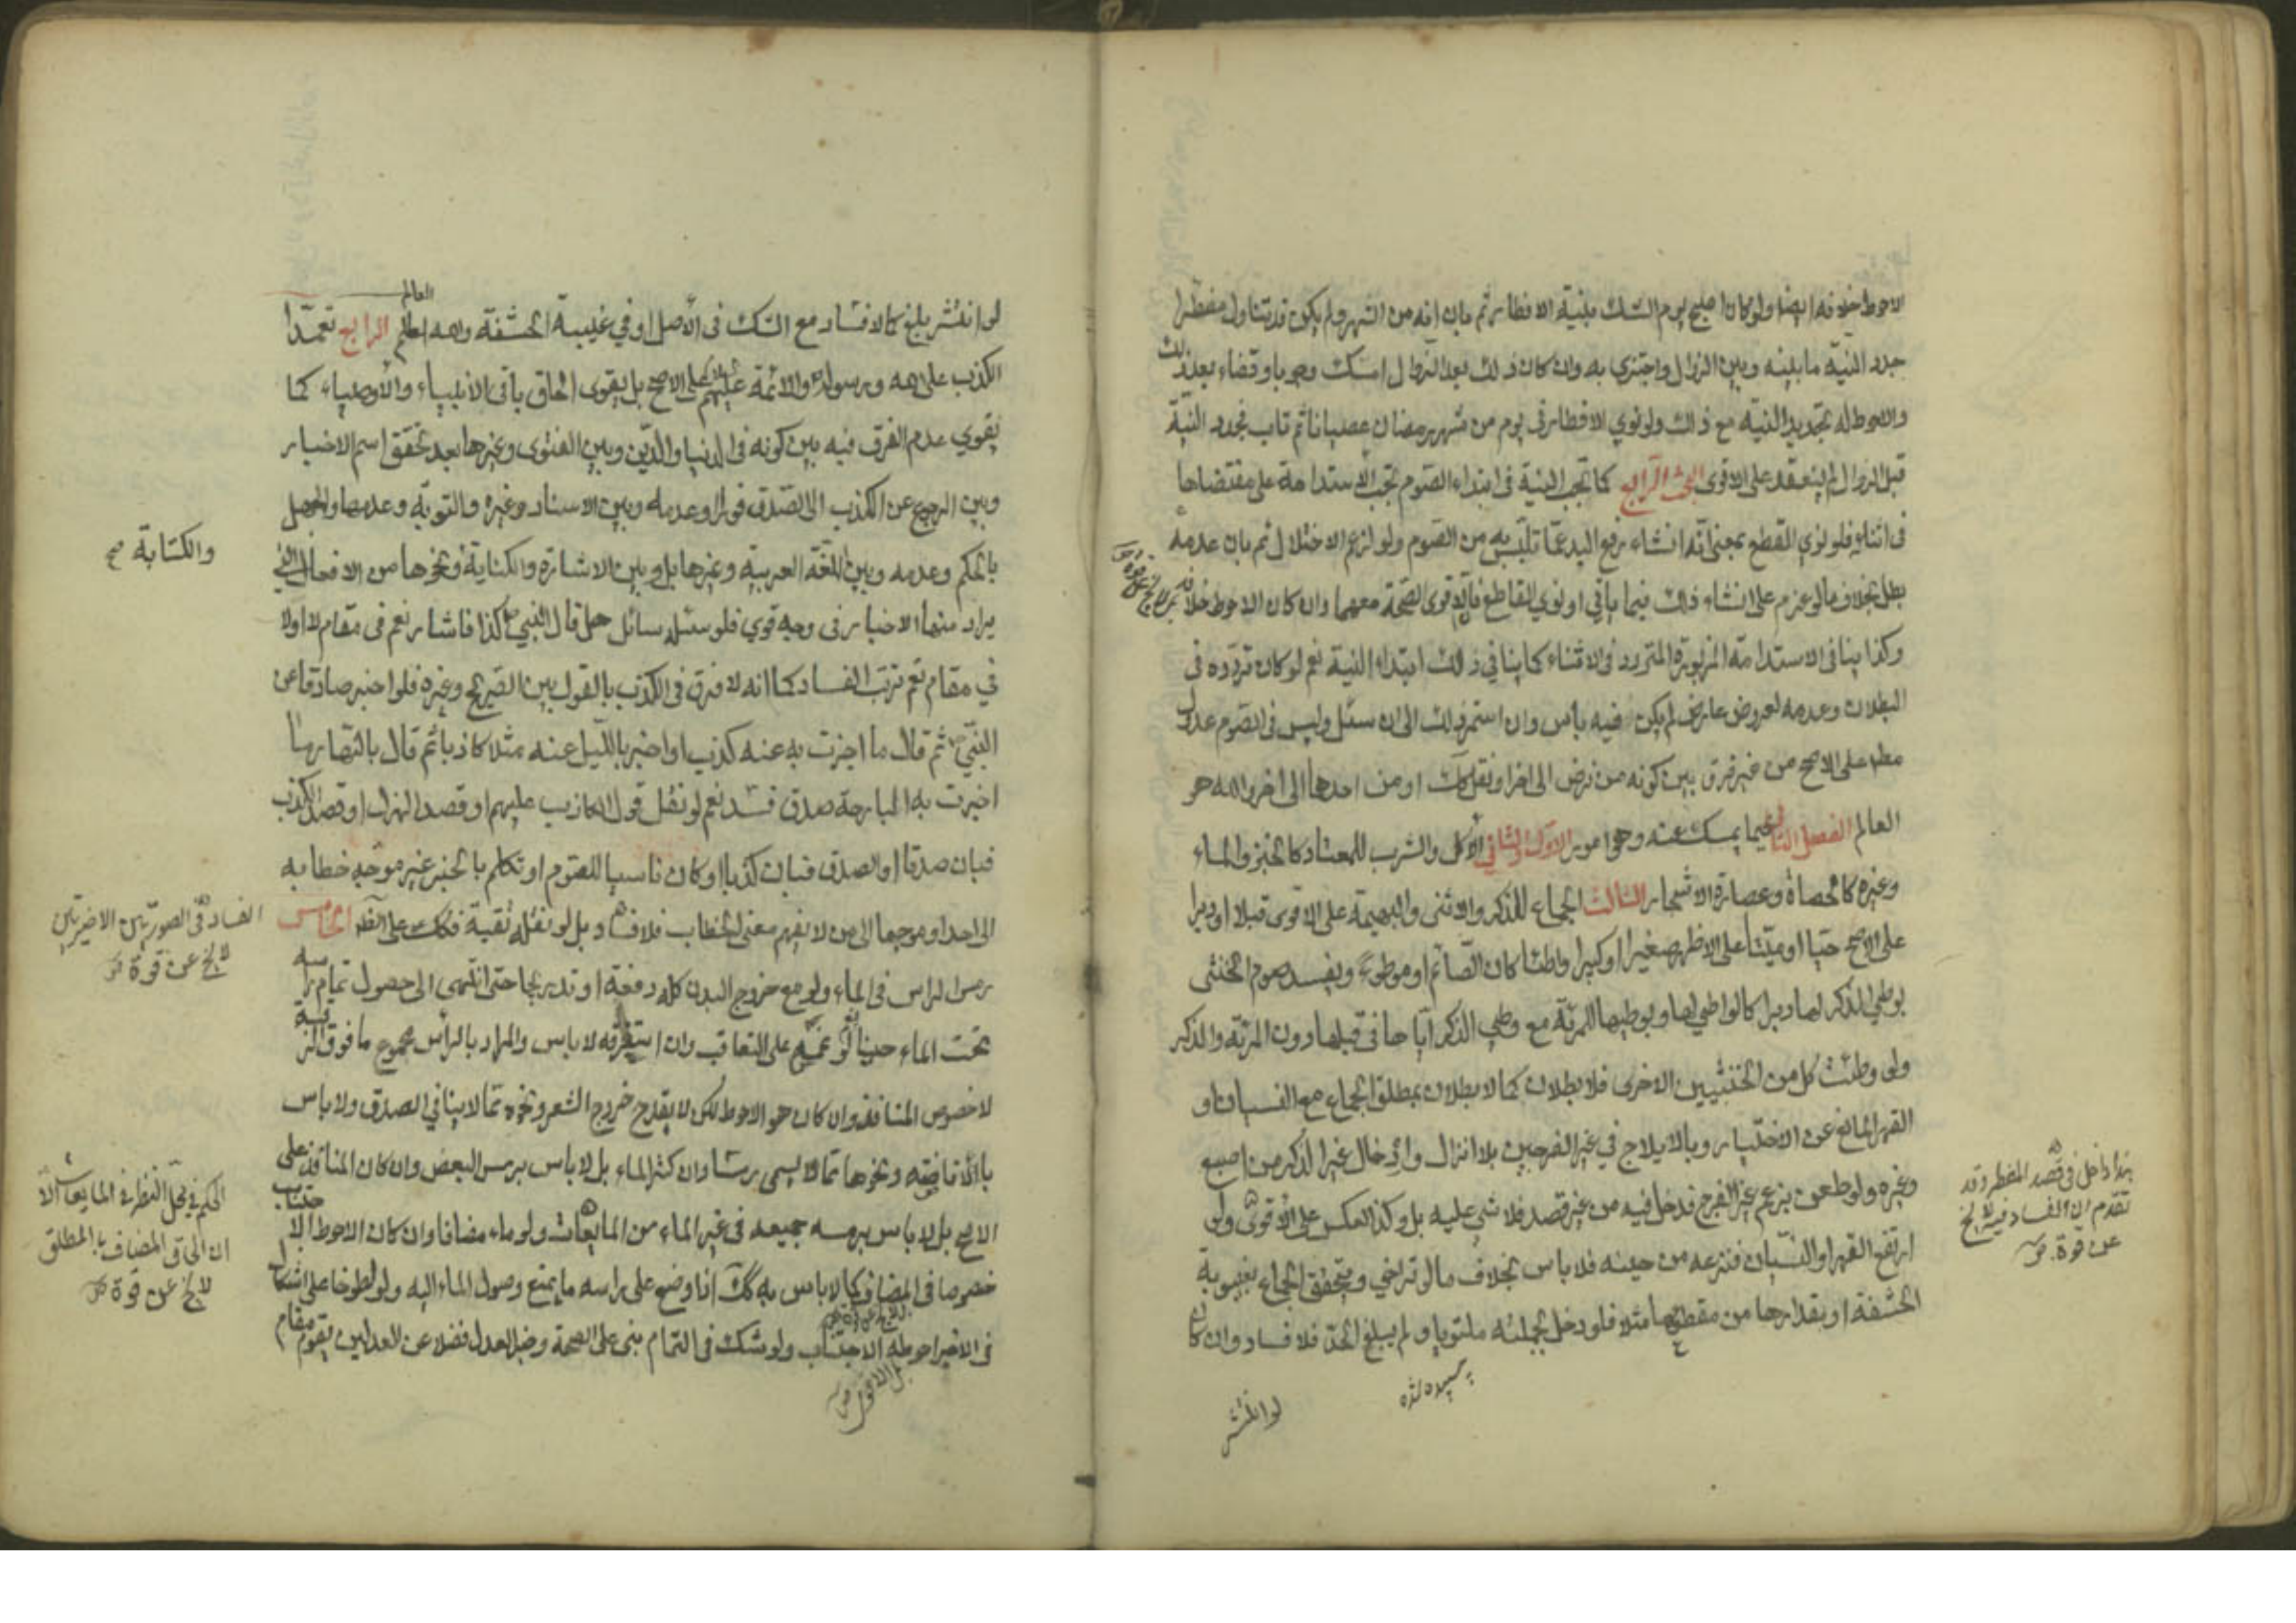 الاحوط خلافه ايضا ولو كان اصبح يوم الشك بنية الافطار ثم بان انه من الشهر ولم يكن قد تناول مفطرا
جدد النية ما بينه وبين الزوال واجتزى به وان كان ذلك بعد الزوال امسك وجوبا وقضاء بعد ذلك
والاحوط له تجديد النية مع ذلك ولو نوى الافطار فى يوم من شهر رمضان عصيانا ثم تاب فجدد النية
قبل الزوال لم ينعقد على الاقوى البحث الرابع كما تجب النية فى ابتداء الصوم تجب الاستدامة على مقتضاها
فى اثنائه فلو نوى القطع بمعنى انه انشاء رفع اليد عما تلبس به من الصوم ولو لزعم الاختلال ثم بان عدمه
بطل بخلاف ما لو عزم على انشاء ذلك فيما ياتي او نوى القاطع فالاقوى الصحة معهما وان كان الاحوط خلافه
وكذا ينافى الاستدامة المزبورة التردد فى الاثناء كما ينافي ذلك ابتداء النية نعم لو كان تردده فى
البطلان وعدمه لعروض عارض لم يكن فيه بأس وان استمر ذلك الى ان سئل وليس فى الصوم عدول
مطم على الاصح من غير فرق بين كونه من فرض الى اخر او نفل كك او من احدها الى اخر والله هو
العالم الفصل الثاني فيما يمسك عنه وهو امور الاول والثاني الأكل والشرب للمعتاد كالخبز والماء
وغيره كالحصاة وعصارة الاشجار الثالث الجماع للذكر والانثى والبهيمة على الاقوى قبلا او دبرا
على الاصح حيا او ميتا على الاظهر صغيرا او كبيرا واطئا كان الصائم او موطوءً ويفسد صوم الخنثى
بوطي الذكر لها دبرا كالواطي لها وبوطيها للمرئة مع وطي الذكر اياها فى قبلها دون المرئة والذكر
ولو وطئت كل من الخنثيين الاخرى فلا بطلان كما لا بطلان بمطلق الجماع مع النسيان او
القهر المانع عن الاختيار وبالايلاج في غير الفرجين بلا انزال وادخال غير الذكر من اصبع
وغيره ولو طعن بزعم غير الفرج فدخل فيه من غير قصد فلا شي عليه بل وكذا العكس على الاقوى ولو
ارتفع القهر او النسيان فنزعه من حينه فلا باس بخلاف ما لو تراخي ويتحقق الجماع بغيبوبة
الحشفة او بقدارها من مقطوعها مثلا فلو دخل بجملته ملتويا ولم يبلغ الحد فلا فساد وان كان
لو انتشر
هذا داخل فى قصد المفطر وقد
تقدم ان الفساد فيه لا يخ
عن قوة
لو انتشر بلغ كالافساد مع الشك فى الاصل او في غيبة الحشفة والله العالم الرابع تعمد
الكذب على الله ورسوله والائمة عليهم السلام على الاصح بل يقوى الحاق باقى الانبياء والاوصياء كما
يقوي عدم الفرق فيه بين كونه فى الدنيا والدين وبين الفتوى وغيرها بعد تحقق اسم الاخبار
وبين الرجوع عن الكذب الى الصدق فورا وعدمه وبين الاسناد وغيره والتوبة وعدمها والجهل
بالحكم وعدمه وبين اللغة العربية وغيرها بل وبين الاشارة والكناية ونحوها من الافعال التي
يراد منها الاخبار فى وجه قوي فلو سئله سائل هل قال النبي كذا فاشار نعم فى مقام لا او لا
في مقام نعم ترتب الفساد كما انه لا فرق فى الكذب بالقول بين الصريح وغيره فلو اخبر صادقا عن
النبي ثم قال ما اخبرت به عنه كذب او اخبر بالليل عنه مثلا كاذبا ثم قال بالنهار ما
اخبرت به البارحة صدق فسد نعم لو نقل قول الكاذب عليهم او قصد الهزل او قصد الكذب
فبان صدقا او الصدق فبان كذبا او كان ناسيا للصوم او تكلم بالخبر غير موجه خطابه
الى احد او موجها الى من لا يفهم معنى الخطاب فلا فساد بل لو نقله تقية فكك على الظ الخامس
رمس الراس فى الماء ولو مع خروج البدن كله دفعة او تدريجا حتى انتهى الى حصول تمام راسه
تحت الماء حينا لو غمسه على التعاقب وان استغرقه لا باس والمراد بالرأس مجموع ما فوق الرقبة
لا خصوص المنافذ وان كان هو الاحوط لكن لا يقدح خروج الشعر ونحوه مما لا ينافي الصدق ولا باس
بالافاضة ونحوها مما لا يسمى رمسا وان كثر الماء بل لا باس برمس البعض وان كان المنافذ على
الاصح بل لا باس برمسه جميعه فى غير الماء من المايعات ولو ماء مضافا وان كان الاحوط الاجتناب
خصوصا فى المضاف كما لا باس به كك اذا وضع على راسه ما يمنع وصول الماء اليه ولو لطوخا على اشكال
فى الاخير احوطه الاجتناب ولو شك فى التمام بنى على الصحة وخبر العدل فضلا عن العدلين يقوم مقام
بل الاقوى
والكتابة صح
الفساد فى الصورتين الاخيرتين
لا يخ عن قوة
الحكم في محل النظر فى المايعات الا
ان الحاق المضاف بالمطلق
لا يخ عن قوة